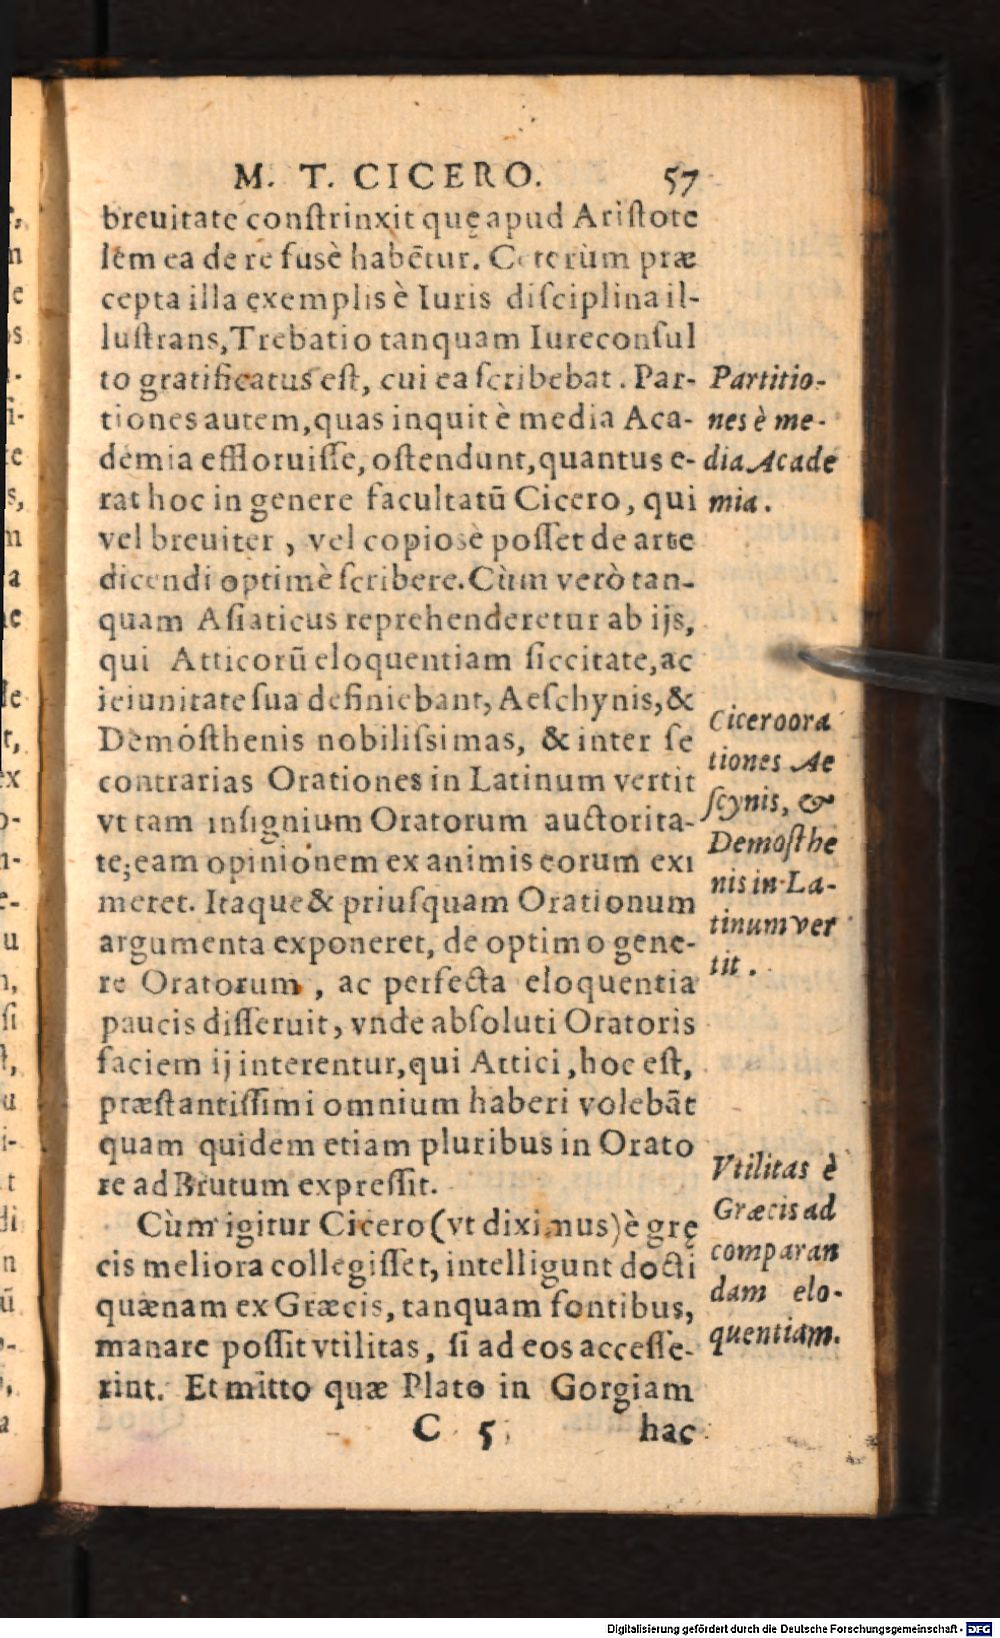 M. T. CICERO. 57
breuitate conſtrinxit quę apud Ariſtote
lem ea de re fusè habētur. Ceterùm præ
cepta illa exemplis è Iuris diſciplina il-
luſtrans, Trebatio tanquam Iureconſul
to gratificatus eſt, cui ea ſcribebat. Par-
tiones autem, quas inquit è media Aca-
demia effloruiſſe, oſtendunt, quantus e-
rat hoc in genere facultatū Cicero, qui
vel breuiter, vel copiosè poſſet de arte
dicendi optimè ſcribere. Cùm verò tan-
quam Aſiaticus reprehenderetur ab ijs,
qui Atticorū eloquentiam ſiccitate, ac
ieiunitate ſua definiebant, Aeſchynis, &
Demóſthenis nobiliſsimas, & inter ſe
contrarias Orationes in Latinum vertit
vt tam inſignium Oratorum auctorita-
te, eam opinionem ex animis eorum exi
meret. Itaque & priuſquam Orationum
argumenta exponeret, de optimo gene-
re Oratorum, ac perfecta eloquentia
paucis diſſeruit, vnde abſoluti Oratoris
faciem ij interentur, qui Attici, hoc eſt,
præſtantiſſimi omnium haberi volebāt
quam quidem etiam pluribus in Orato
re ad Brutum expreſſit.
Cùm igitur Cicero (vt diximus) è grę
cis meliora collegiſſet, intelligunt docti
quænam ex Græcis, tanquam fontibus,
manare poſſit vtilitas, ſi ad eos acceſſe-
rint. Et mitto quæ Plato in Gorgiam
C 5 hac
Partitio-
nes è me-
dia Acade
mia.
Cicero ora
tiones Ae
ſcynis, &
Demoſthe
nis in La-
tinum ver
tit.
Vtilitas è
Græcis ad
comparan
dam elo-
quentiam.
Digitalisierung gefördert durch die Deutsche Forschungsgemeinschaft - DFG